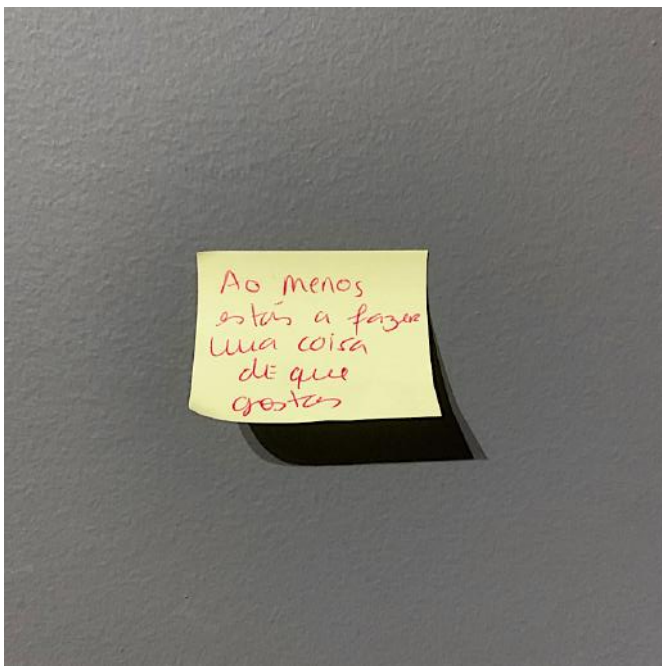 Ao menos
estás a fazer
uma coisa
de que
gostas